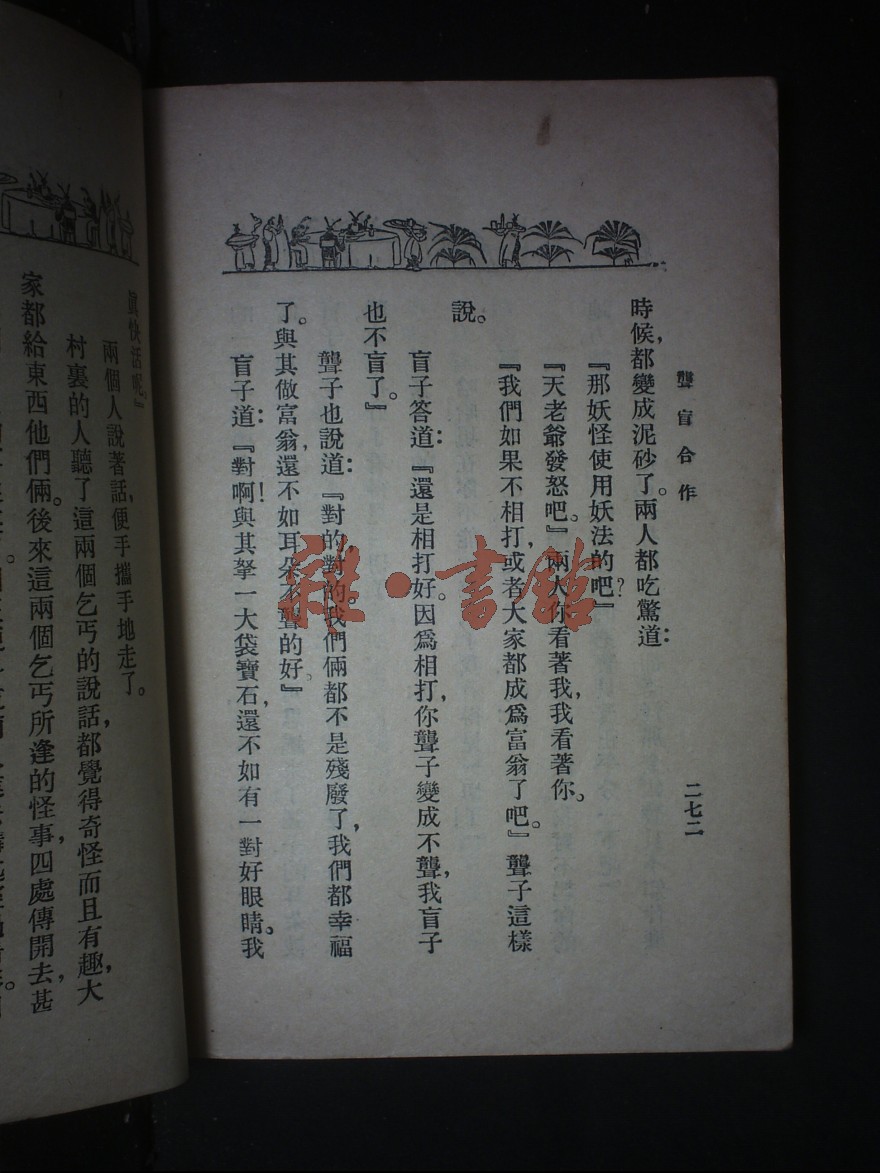 聾盲合作
二七二
時候，都變成泥砂了。兩人都吃驚道：
『那妖怪使用妖法的吧？』
『天老爺發怒吧。』兩人你看著我，我看著你。
『我們如果不相打，或者大家都成爲富翁了吧。』聾子這樣
說。
盲子答道：『還是相打好。因爲相打，你聾子變成不聾，我盲子
也不盲了。』
聾子也說道：『對的對的。我們倆都不是殘廢了，我們都幸福
了。與其做富翁，還不如耳朵不聾的好。』
盲子道：『對啊！與其拏一大袋寶石，還不如有一對好眼睛。我
眞快活呢。』
兩個人說著話，便手攜手地走了。
村裏的人聽了這兩個乞丐的說話，都覺得奇怪而且有趣，大
家都給東西他們倆。後來這兩個乞丐所逢的怪事，四處傳開去，甚
雜·書館